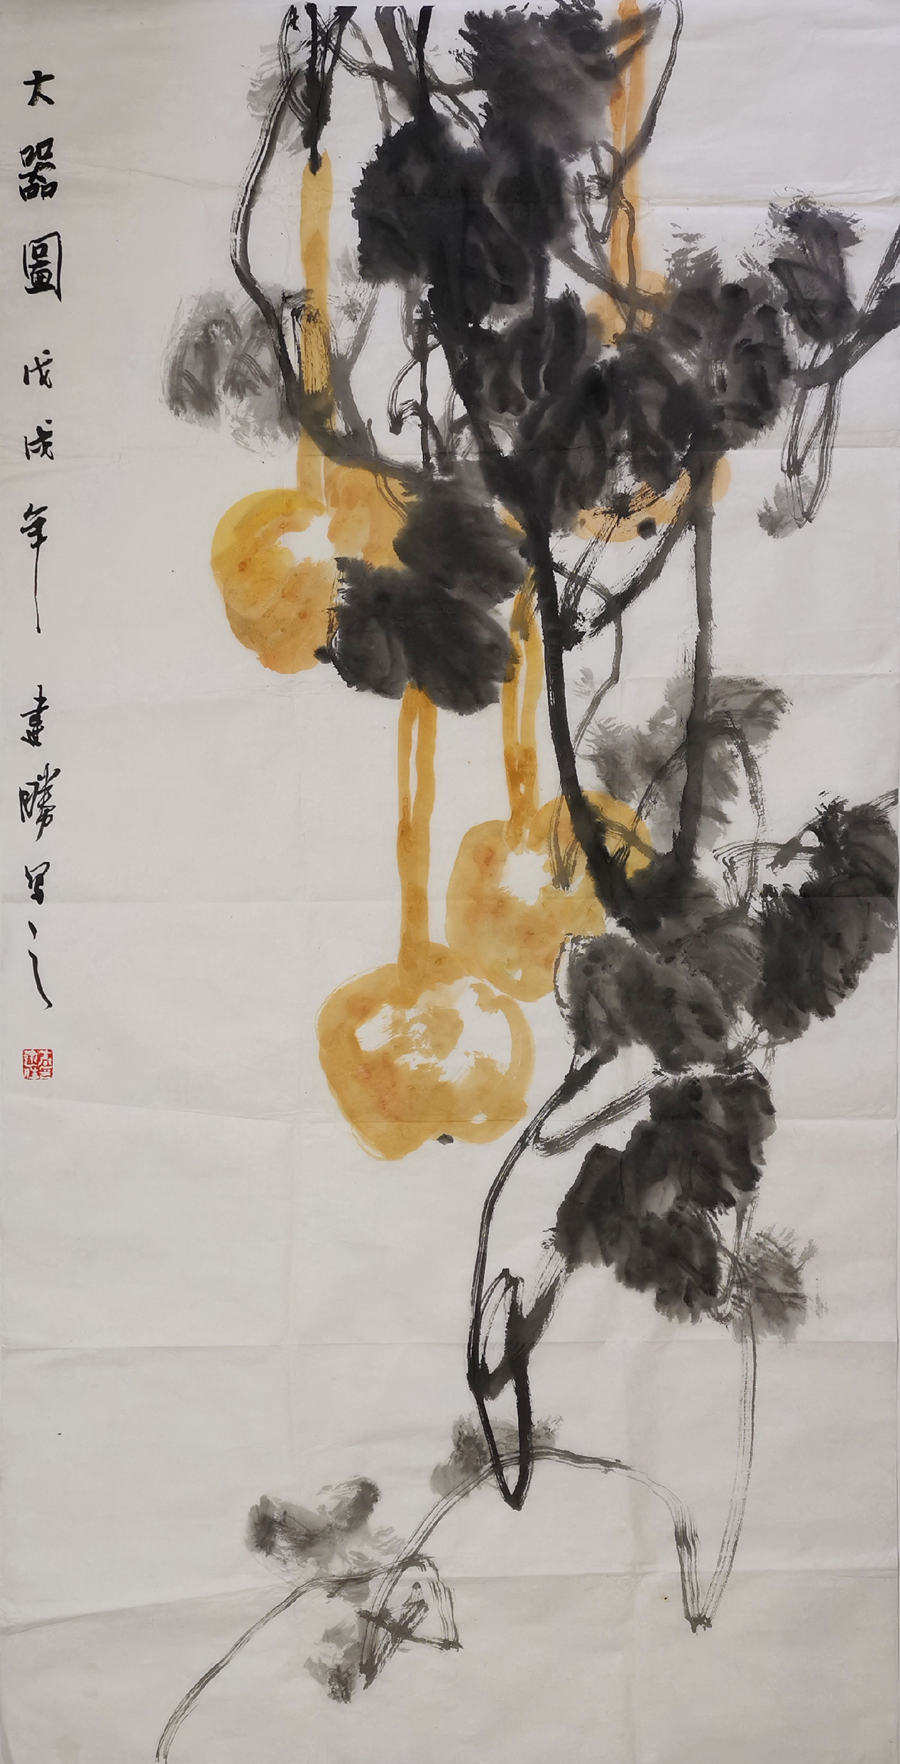 大器圖戊戌年建勝写之